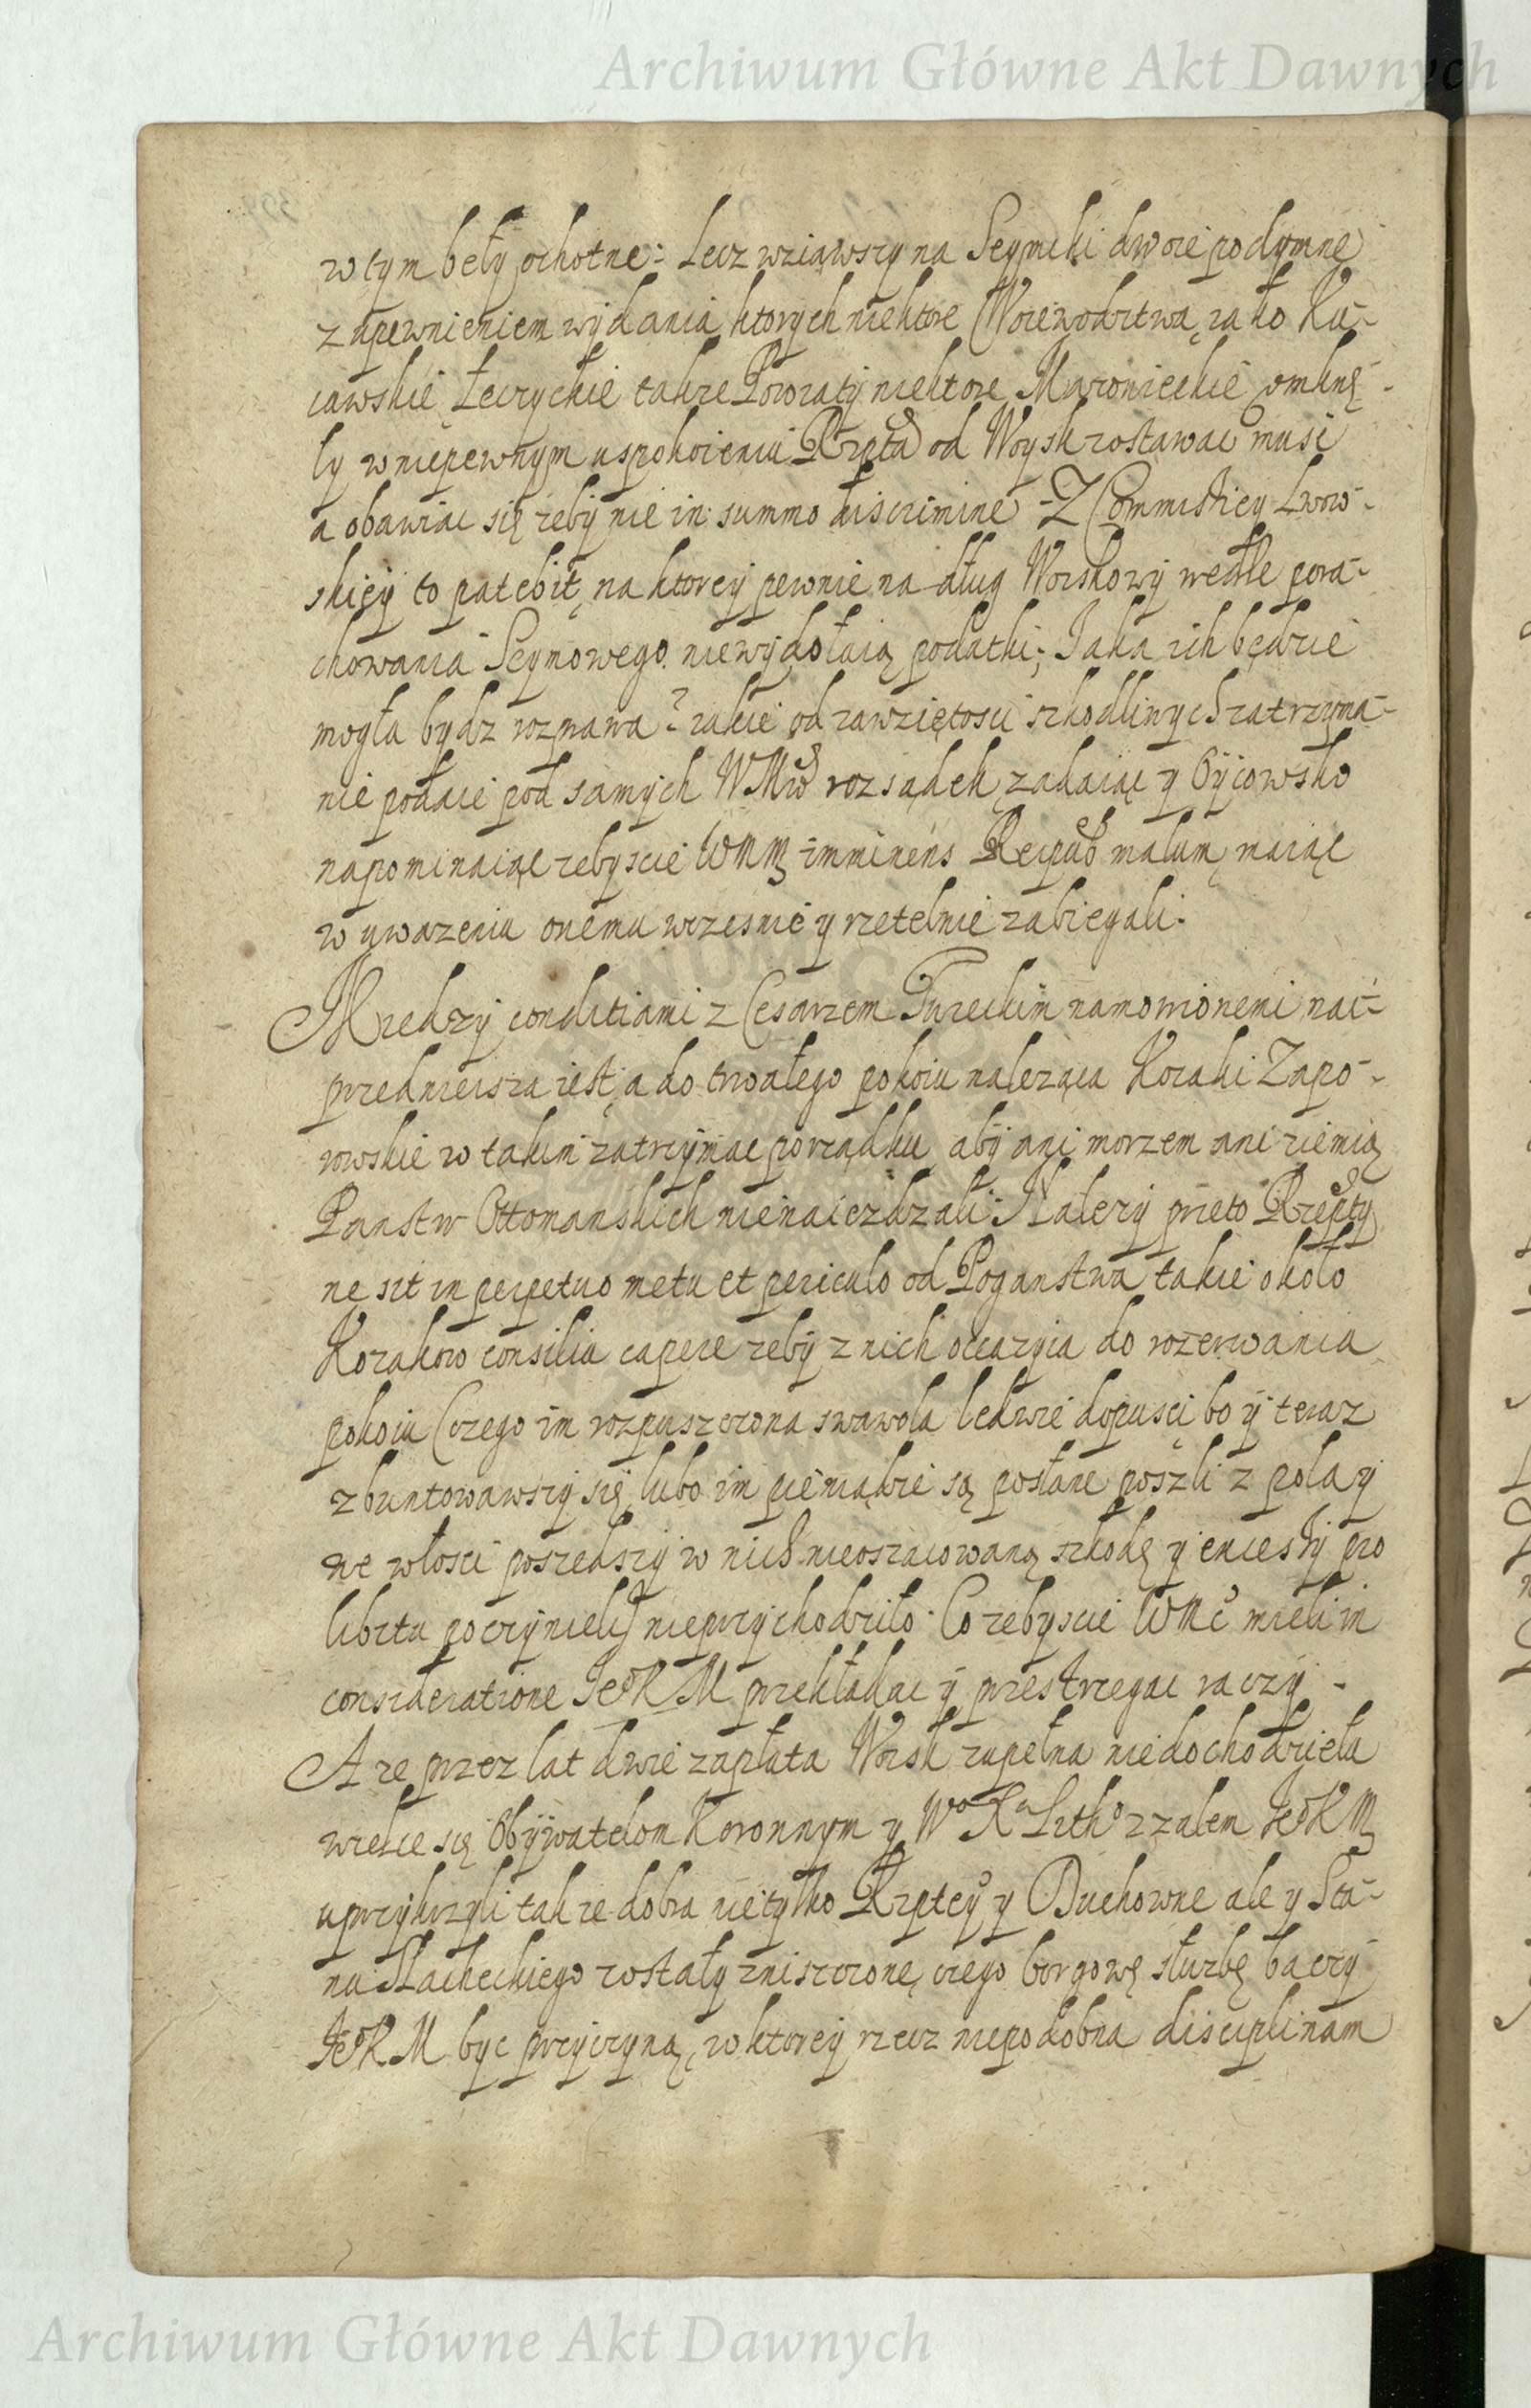 Archiwum Główne Akt Dawnych
w tym beły ochotne: Lecz wziąwszy na Seymiki dwoie podymne
z upewnieniem wydania ktorych niektore Woiewodztwa, iako Ku-
iawskie Łęczyckie także Powiaty niektore Mazowieckie omknę-
ły w niepewnym uspokoieniu Rzpta od Woysk zostawac musi
a obawiac się żeby nie in summo discrimine - Z Commissiey Lwow-
skiey to patebit, na ktorey pewnie na dług Woiskowy wedle pora-
chowania Seymowego niewydołaią podatki; Jaka ich będzie
mogła bydz rozprawa? iakie od zawziętosci szkodliwych zatrzyma-
nie podaie pod samych WMciow rozsądek, żądaiąc y Oycowsko
napominaiąc żebyscie WMM imminens Reipub malum, maiąc
w uważeniu onemu wczesnie y rzetelnie zabiegali.
Miedzy conditiami z Cesarzem Tureckim namowionemi nai-
przednieisza iest, a do trwałego pokoiu należąca Kozaki Zapo-
rowskie w takim zatrzymac porządku, aby ani morzem ani ziemią
Panstw Ottomanskich nienaieżdzali: Należy przeto Rzepty
ne sit in perpetuo metu et periculo od Poganstwa takie około
Kozakow consilia capere żeby z nich occazyia do rozerwania
pokoiu (czego im rozpuszczona swawola ledwie dopusci, bo y teraz
zbuntowawszy się, lubo im pieniądze są posłane poszli z pola y
we włosci poszedszy w nich nieoszacowaną szkodę y excessy pro
libitu poczynieli) nieprzychodziło. Co żebyscie WMc mieli in
consideratione JeoKM przekładac y przestrzegac raczy -
A że przez lat dwie zapłata Woisk zupełna niedochodzieła
wielce się Obywatelom Koronnym y Wo Xa Litho z żalem JeoKM
uprzykrzyli także dobra nietylko Rzptey y Duchowne ale y Sta-
nu Slacheckiego zostały zniszczone, czego borgową służbę baczy
JeoKM byc przyczyną, w ktorey rzecz niepodobna disciplinam
Archiwum Główne Akt Dawnych